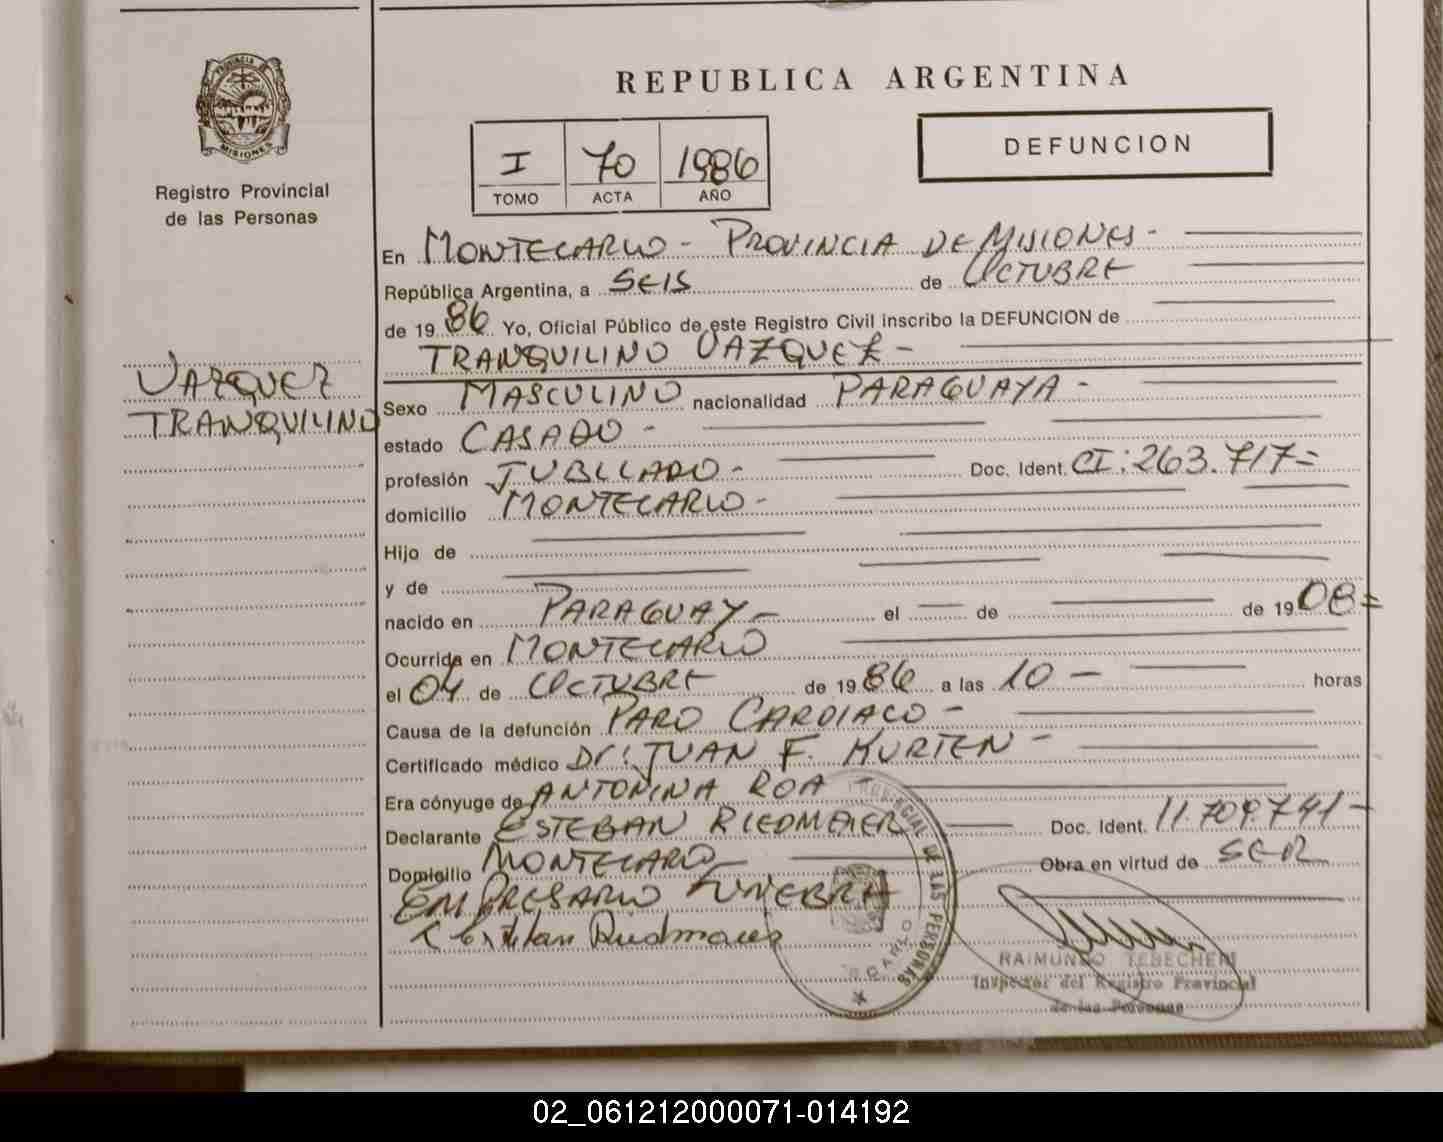 PROVINCIA DE
MISIONES
Registro Provincial
de las Personas
VAZQUEZ
TRANQUILINO
REPUBLICA ARGENTINA
I 70 1986
TOMO ACTA AÑO
DEFUNCION
En MONTECARLO - PROVINCIA DE MISIONES -
República Argentina, a SEIS de OCTUBRE
de 1986 Yo, Oficial Público de este Registro Civil inscribo la DEFUNCION de
TRANQUILINO VAZQUEZ -
Sexo MASCULINO nacionalidad PARAGUAYA -
estado CASADO -
profesión JUBILADO - Doc. Ident. CI: 263.717=
domicilio MONTECARLO -
Hijo de
y de
nacido en PARAGUAY - el — de — de 1908=
Ocurrida en MONTECARLO
el 04 de OCTUBRE de 1986 a las 10 — horas
Causa de la defunción PARO CARDIACO -
Certificado médico Dr: JUAN F. KURTEN -
Era cónyuge de ANTONINA ROA -
Declarante ESTEBAN RIEDMEIER Doc. Ident. 11.709.741-
Domicilio MONTECARLO - Obra en virtud de SER
EMPRESARIO FUNEBRE
PROVINCIAL DE LAS PERSONAS
RAIMUNDO TEBECHERI
Inspector del Registro Provincial
de las Personas
02_061212000071-014192